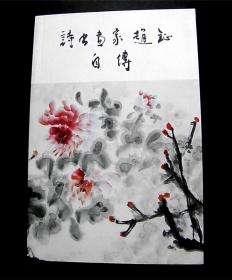 詩書畫家趙鉦
自傳